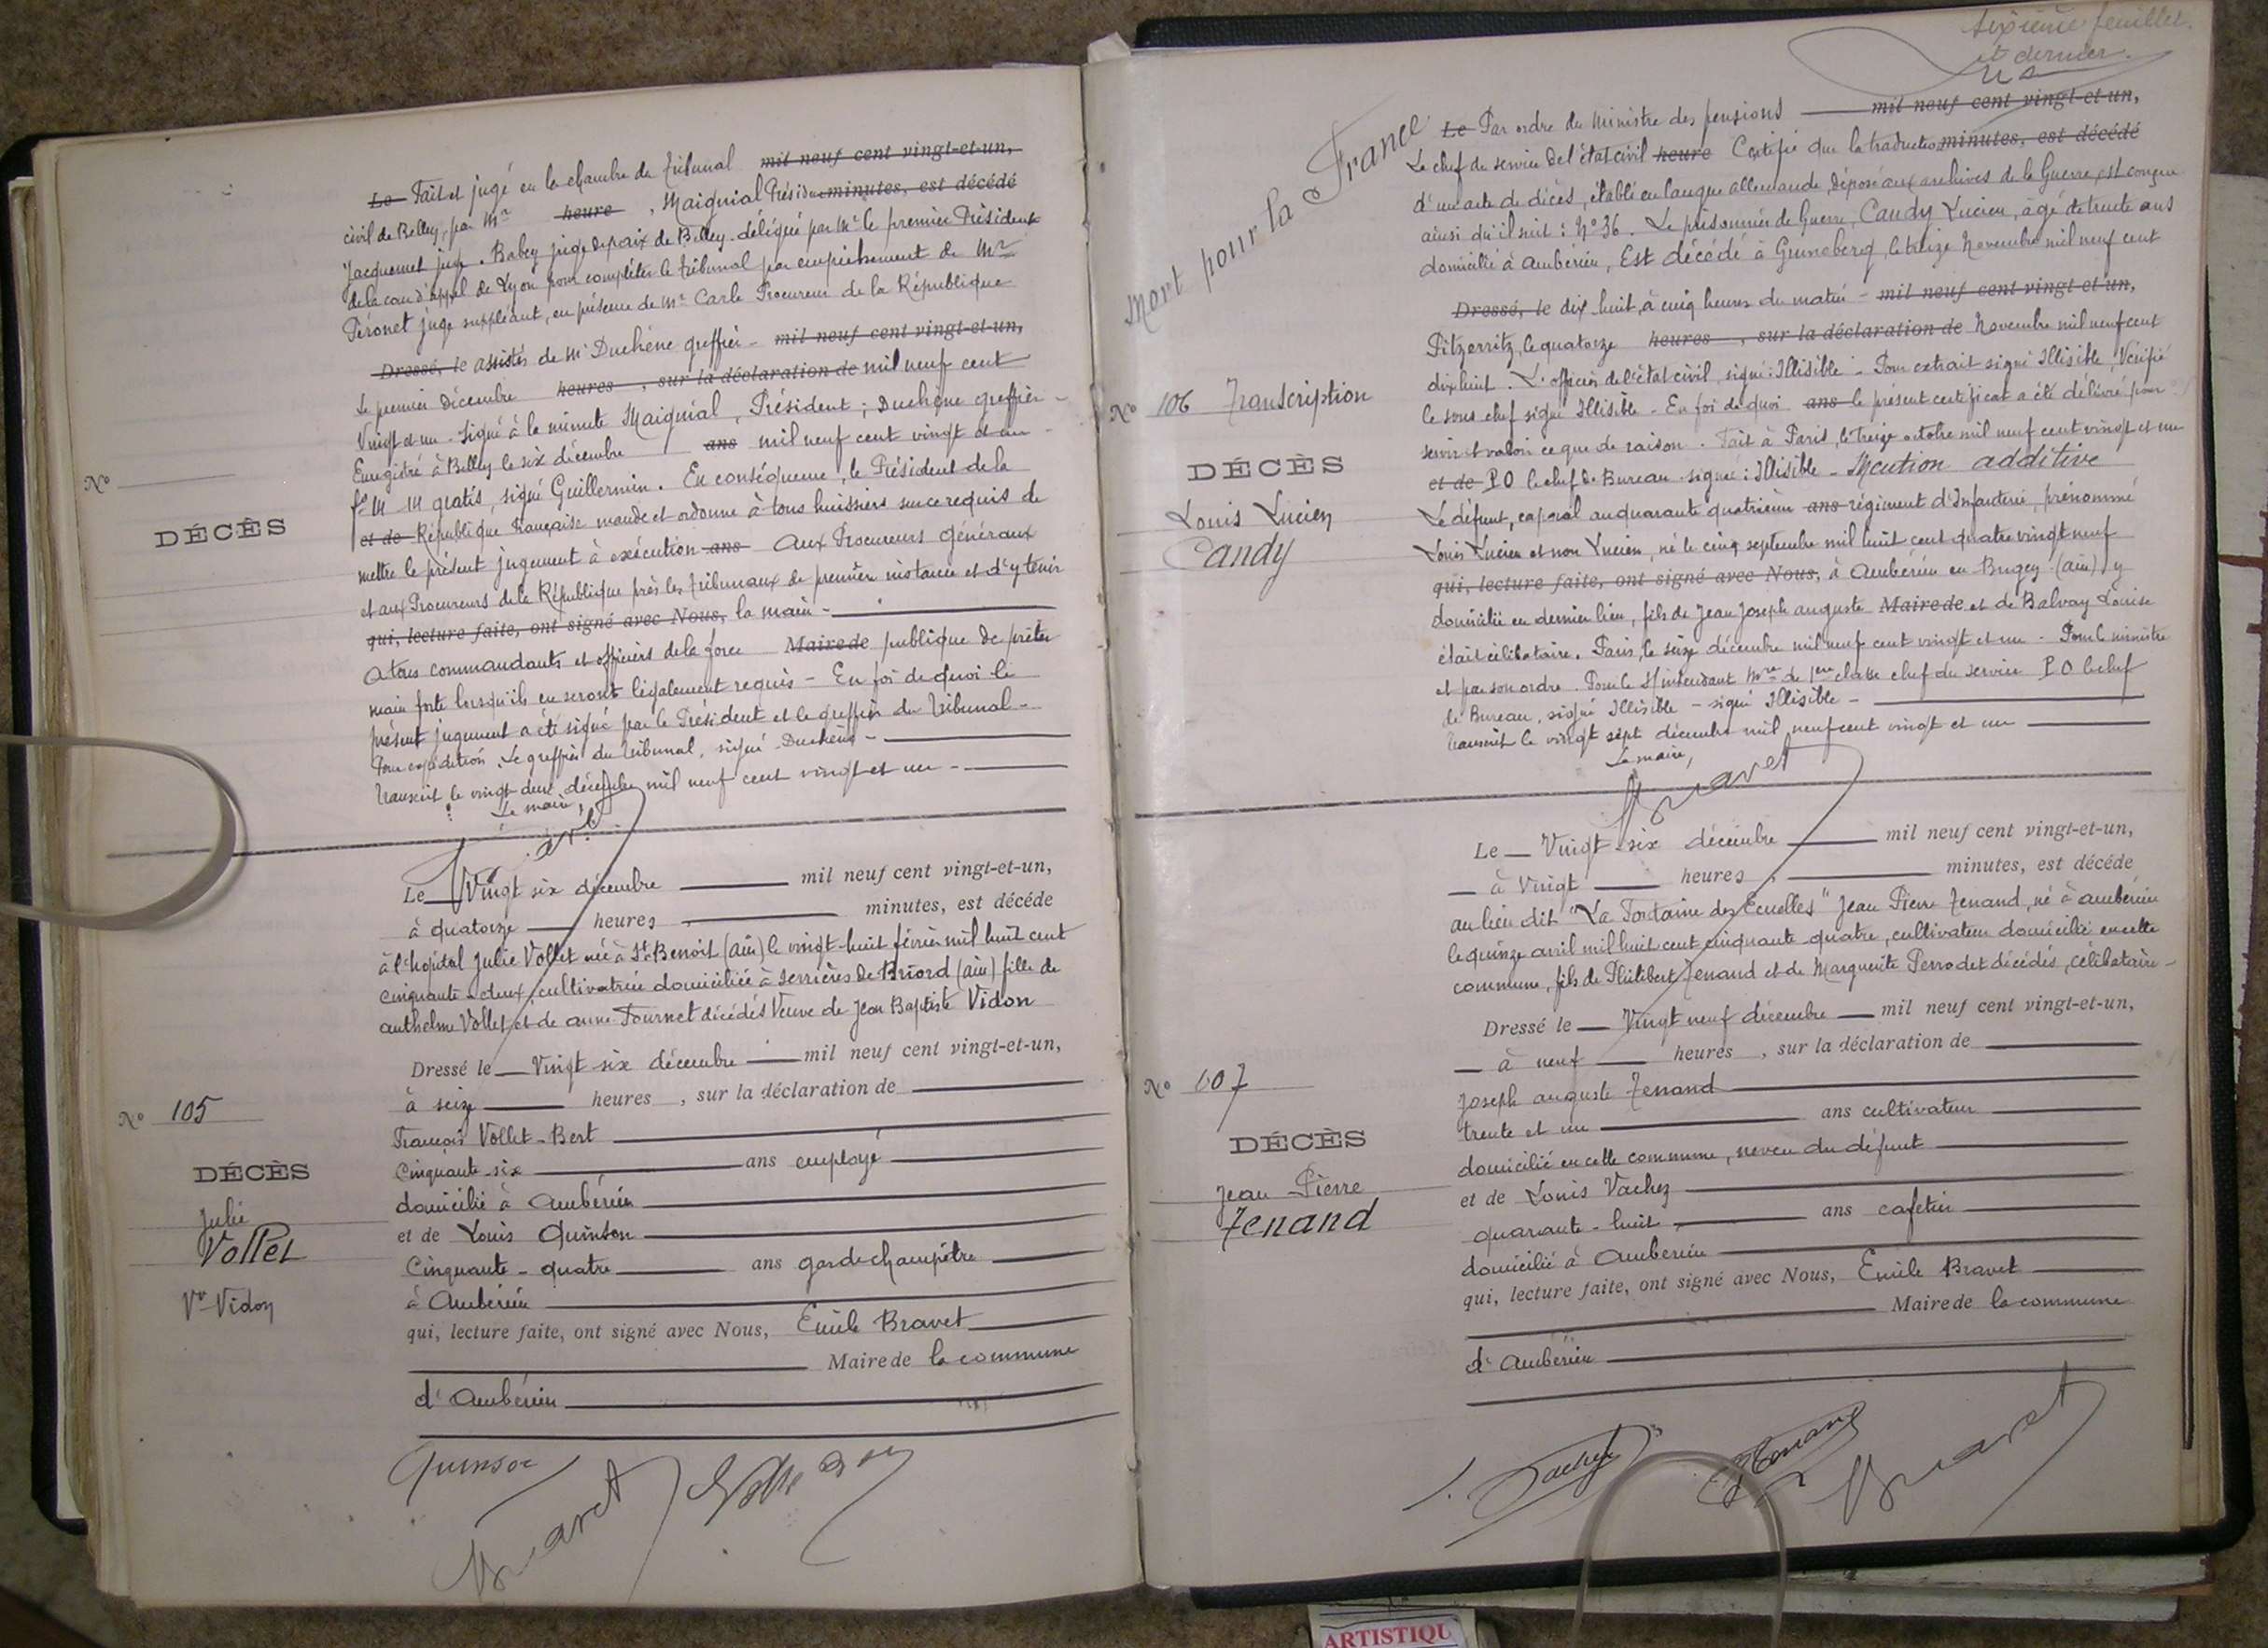 Le Fait et jugé en la chambre du Tribunal mil neuf cent vingt-et-un,
civil de Belley, par Mr heure , Maignial Président minutes, est décédé
Jacquemet juge. Babey juge de paix de Belley. délégué par Mr le premier Président
de la cour d'appel de Lyon pour compléter le tribunal par empêchement de Mr
Péronet juge suppléant, en présence de Mr Carle Procureur de la République
Dressé, le assistés de Mr Duchêne greffier - mil neuf cent vingt-et-un,
Le premier décembre heures , sur la déclaration de mil neuf cent
Vingt et un - signé à la minute Maignial, Président ; Duchêne greffier -
Enregistré à Belley le six décembre ans mil neuf cent vingt et un -
gratis, signé Guillermin. En conséquence, le Président de la
et de République Française mande et ordonne à tous huissiers sur ce requis de
mettre le présent jugement à exécution ans Aux Procureurs Généraux
et aux Procureurs de la République près les tribunaux de première instance et d'y tenir
qui, lecture faite, ont signé avec Nous, la main -
A tous commandants et officiers de la force Maire de publique de prêter
main forte lorsqu'ils en seront légalement requis - En foi de quoi le
présent jugement a été signé par le Président et le greffier du Tribunal -
Pour expédition. Le greffier du tribunal, signé Duchêne -
Transcrit le vingt deux décembre mil neuf cent vingt et un -
Le maire,
No
DÉCÈS
Le Vingt six décembre mil neuf cent vingt-et-un,
à quatorze heures , minutes, est décédé
à l'hopital Julie Vollet née à St Benoit (ain) le vingt-huit février mil huit cent
cinquante-deux, cultivatrice domiciliée à Serrières de Briord (ain) fille de
anthelme Vollet et de anne Fournet décédés Veuve de Jean Baptiste Vidon
Dressé le Vingt six décembre mil neuf cent vingt-et-un,
à seize heures , sur la déclaration de
François Vollet-Bert
Cinquante-six ans employé
domicilié à Ambérieu
et de Louis Quinson
Cinquante-quatre ans garde champêtre
à Ambérieu
qui, lecture faite, ont signé avec Nous, Emile Bravet
Maire de la commune
d'Ambérieu
No 105
DÉCÈS
Julie
Vollet
Ve Vidon
Quinson
Bravet
sixième feuillet.
et dernier.
Mort pour la France
Le Par ordre du Ministre des pensions mil neuf cent vingt-et-un,
Le chef du service de l'état civil heure Certifie que la traduction minutes, est décédé
d'un acte de décès, établi en langue allemande, déposé aux archives de la Guerre, est conçue
ainsi qu'il suit : No 36. Le prisonnier de Guerre, Candy Lucien, âgé de trente ans
domicilié à ambérieu, Est décédé à Gruneberg, le treize Novembre mil neuf cent
Dressé, le dix huit, à cinq heures du matin - mil neuf cent vingt et un,
Pitzerritz, le quatorze heures , sur la déclaration de Novembre mil neuf cent
dix huit. L'officier de l'état civil, signé : Illisible - Pour extrait signé Illisible, Vérifié
le sous chef signé Illisible - En foi de quoi ans le présent certificat a été délivré pour
servir et valoir ce que de raison. Fait à Paris, le treize octobre mil neuf cent vingt et un
et de P O le chef de Bureau signé : Illisible - Mention additive
Le défunt, caporal au quarante quatrième ans régiment d'Infanterie, prénommé
Louis Lucien et non Lucien, né le cinq septembre mil huit cent quatre vingt neuf
qui, lecture faite, ont signé avec Nous, à Ambérieu en Bugey (ain), y
domicilié en dernier lieu, fils de Jean Joseph auguste Maire de et de Balvay Louise
était célibataire. Paris, le seize décembre mil neuf cent vingt et un - Pour le ministre
et par son ordre. Pour le S/intendant Mre de 1ere classe chef du service P O le chef
de Bureau, signé Illisible - signé Illisible -
Transcrit le vingt sept décembre mil neuf cent vingt et un
Le maire,
Bravet
No 106 Transcription
DÉCÈS
Louis Lucien
Candy
Le Vingt six décembre mil neuf cent vingt-et-un,
à Vingt heures , minutes, est décédé
au lieu dit "La Fontaine des Ecuelles" Jean Pierre Tenand, né à ambérieu
le quinze avril mil huit cent cinquante quatre, cultivateur domicilié en cette
commune, fils de Philibert Tenand et de Marguerite Perrodet décédés, célibataire -
Dressé le Vingt neuf décembre mil neuf cent vingt-et-un,
à neuf heures , sur la déclaration de
Joseph auguste Tenand
trente et un ans cultivateur
domicilié en cette commune, neveu du défunt
et de Louis Vachez
quarante-huit ans cafetier
domicilié à Ambérieu
qui, lecture faite, ont signé avec Nous, Emile Bravet
Maire de la commune
d'Ambérieu
No 107
DÉCÈS
Jean Pierre
Tenand
Vachez
Tenand
Bravet
ARTISTIQU